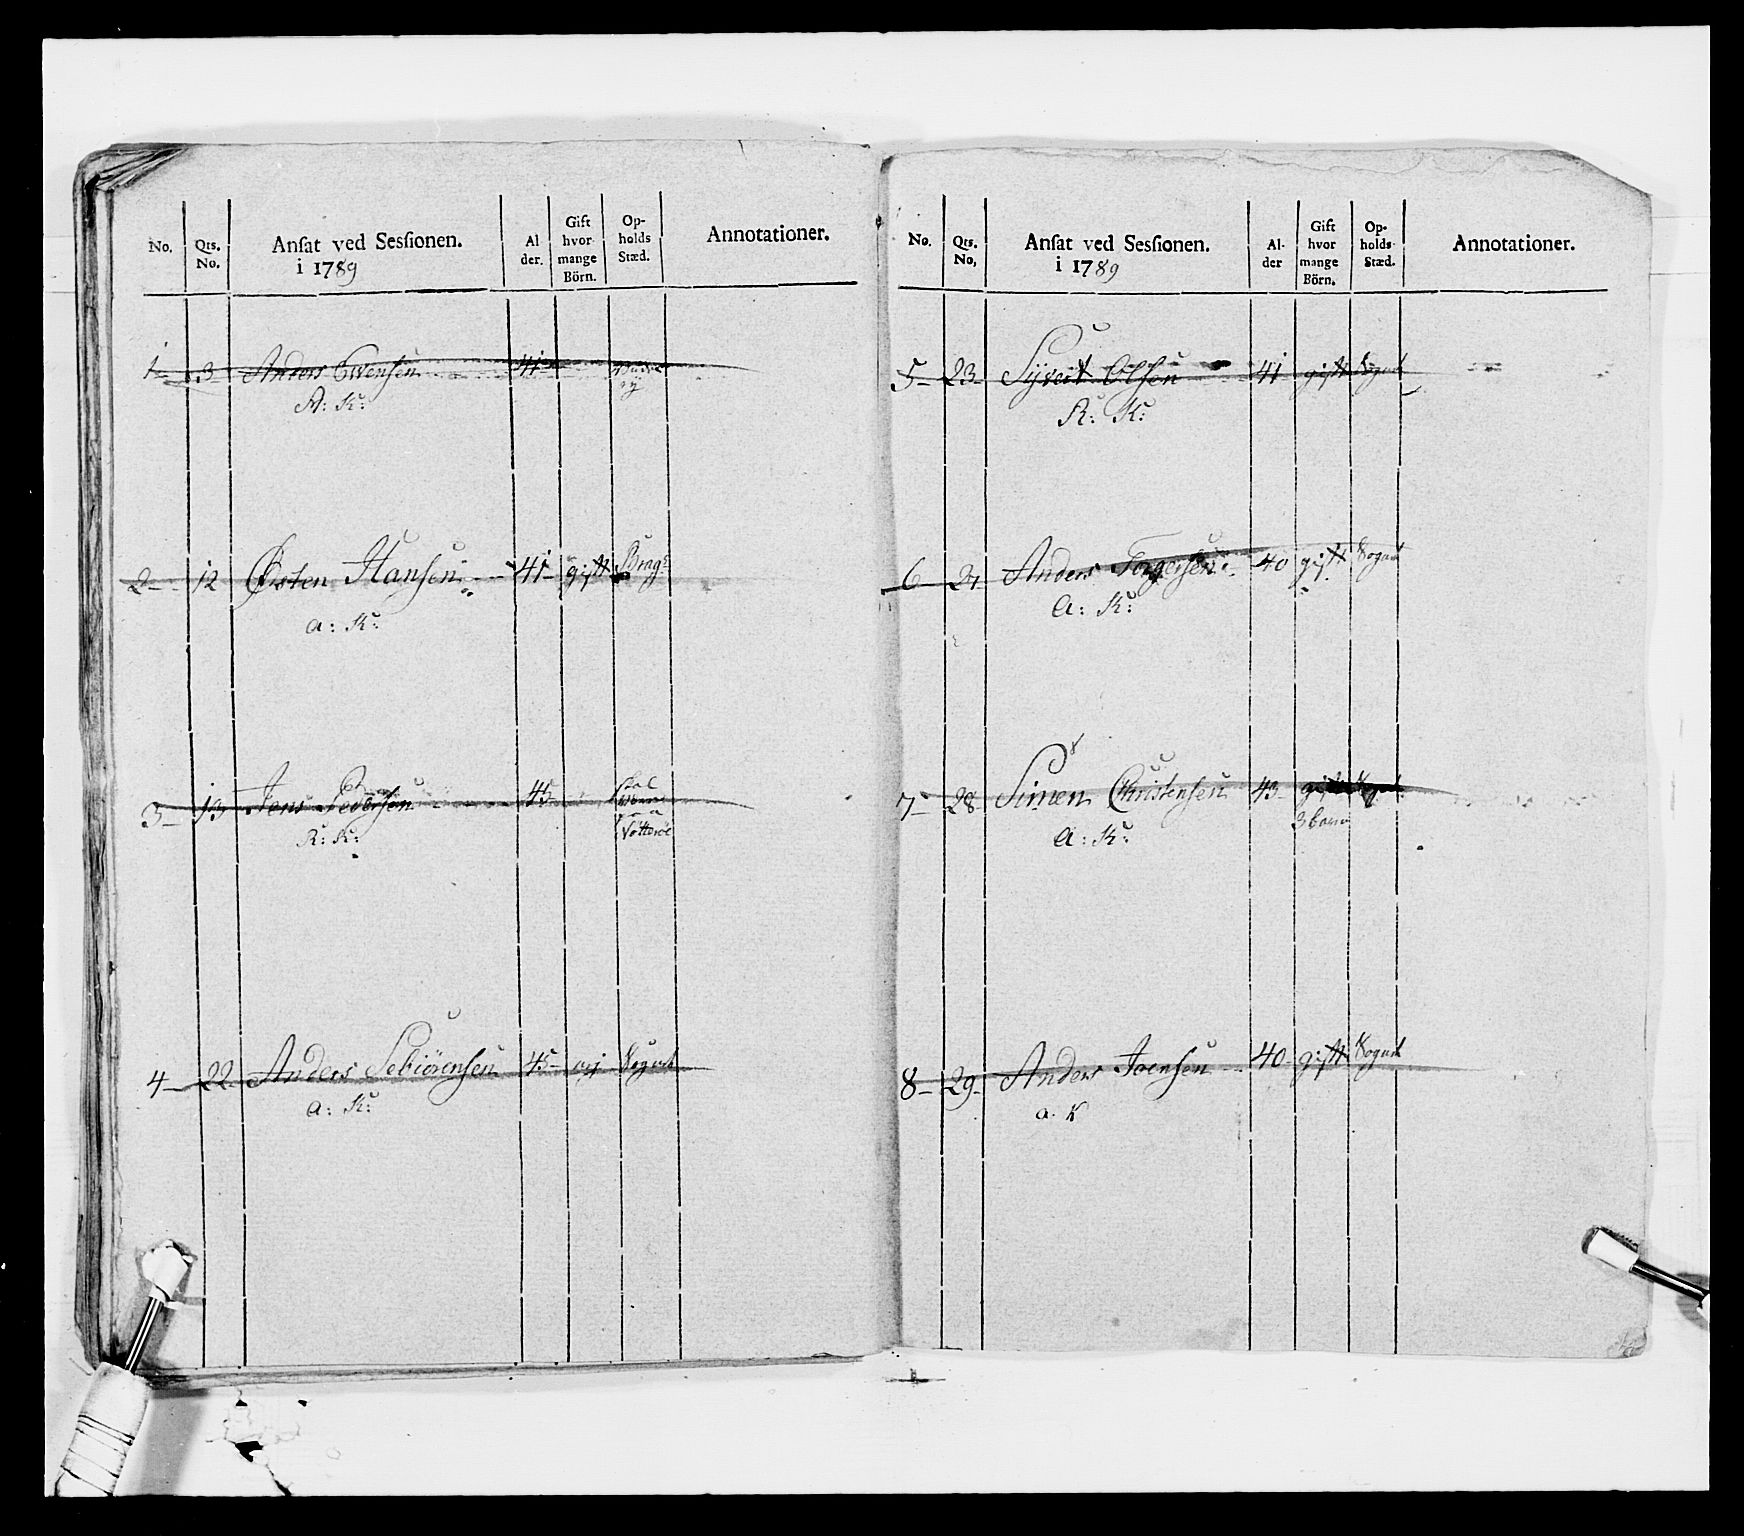 No. Qts. No. Ansat ved Sessionen. i 1789 Al der. Gift hvor mange Börn. Op- holds Stæd. Annotationer.
1 3 Anders Evensen 41
R: K:
2 12 Østen Hansen 41 gift Brag:
a: K:
3 13 Jens Pedersen 45
R: K:
4 22 Anders Sebiörensen 45 Sognet
a: K:
No. Qts. No, Ansat ved Sessionen. i 1789 Al- der Gift hvor mange Börn. Op- holds- Stæd. Annotationer.
5 23 Syvert Olsen 41 gift Sognet
R: K:
6 24 Anders Torgersen 40 gift Sognet
a: K:
7 28 Simen Christensen 43 gift Sognet
3 børn
a: K:
8 29 Anders Joensen 40 gift Sognet
a. K